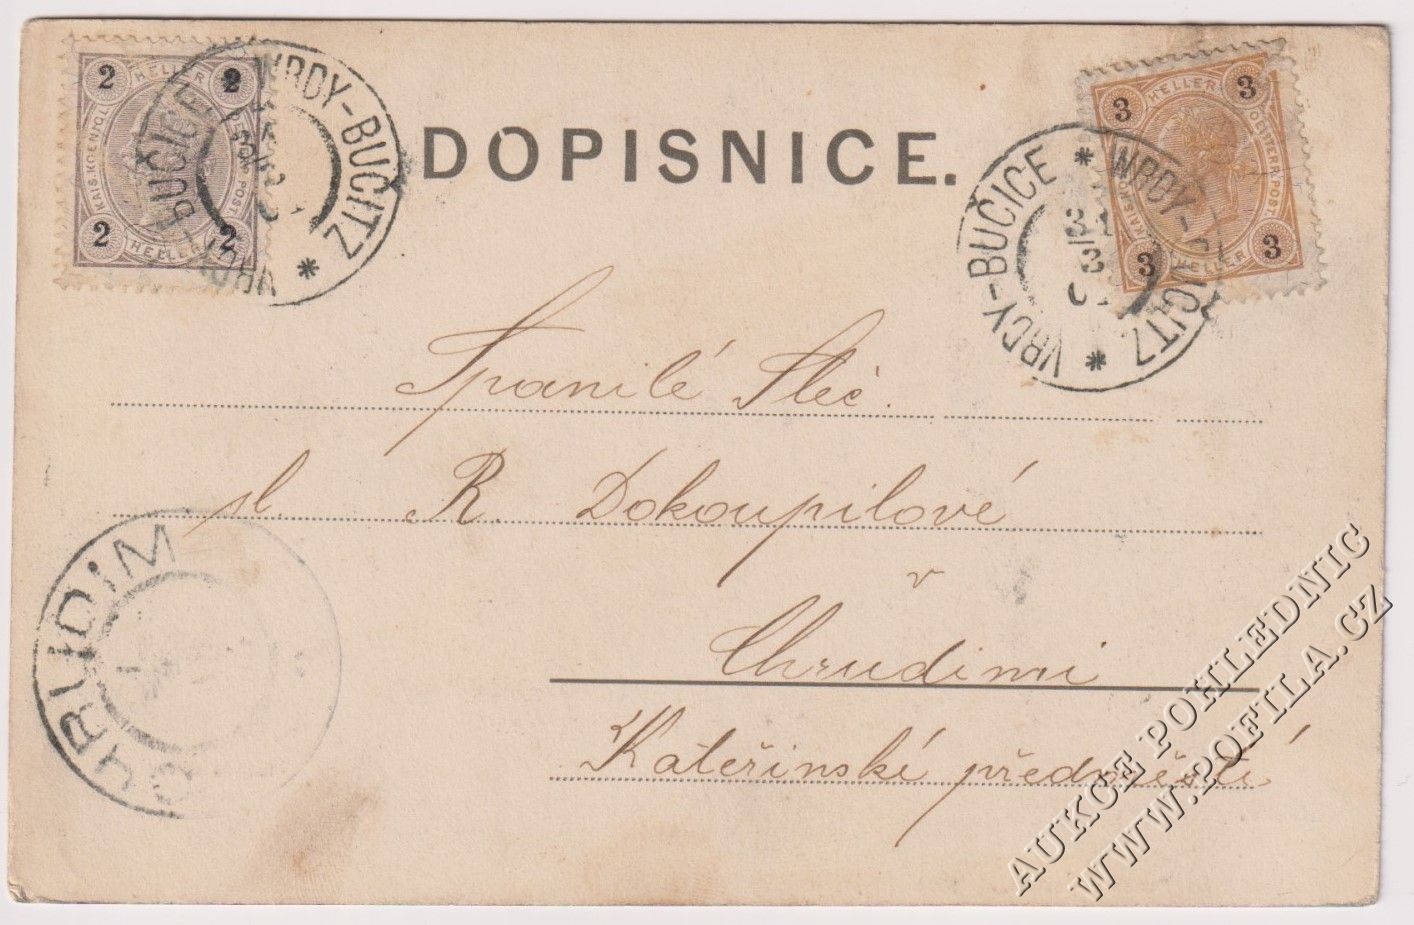 2 HELLER 2
KAIS. KOENIGL. OESTERR. POST
2 HELLER 2
WRDY-BUČITZ * VRDY-BUČICE *
DOPISNICE.
3 HELLER 3
KAIS. KOENIGL. OESTERR. POST
3 HELLER 3
WRDY-BUČITZ * VRDY-BUČICE *
31
3
Spanilé Sleč.
sl. R. Dokoupilové
v
Chrudimi
Kateřinské předměstí
CHRUDIM
AUKCE POHLEDNIC
WWW.POFILA.CZ